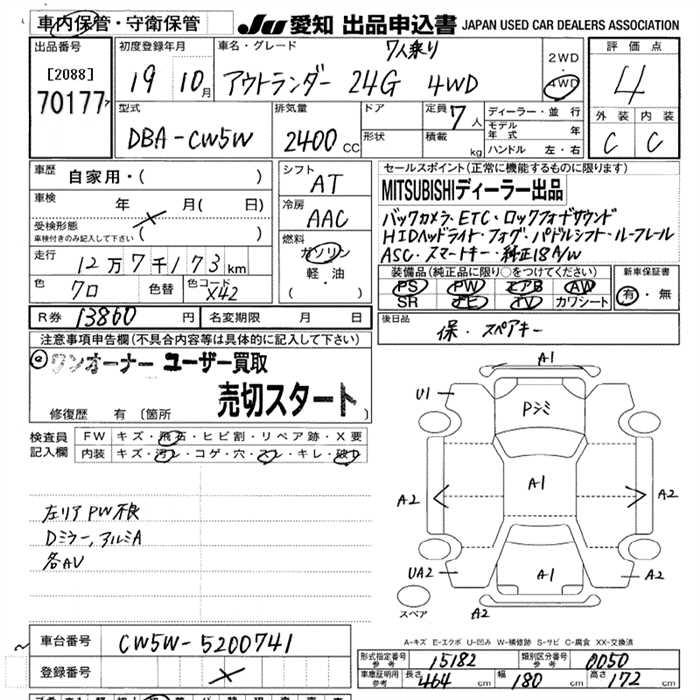 車内保管・守衛保管 JU 愛知 出品申込書 JAPAN USED CAR DEALERS ASSOCIATION
出品番号 初度登録年月 車名・グレード 7人乗り 2WD・4WD 評価点
[2088] 70177 19 10月 アウトランダー 24G 4WD 4
型式 排気量 ドア 定員 7人 ディーラー・並行 外装 内装
DBA-CW5W 2400CC 形状 積載 kg モデル年式 年 C C
ハンドル 左・右
車歴 自家用・( ) シフト AT セールスポイント(正常に機能するものに限ります)
車検 年 月( 日) 冷房 AAC MITSUBISHIディーラー出品
受検形態 車検付きのみ記入して下さい ( ) 燃料 ガソリン 軽・油 ( )
バックカメラ・ETC・ロックフォードサウンド
HIDヘッドライト・フォグ・パドルシフト・ルーフレール
ASC・スマートキー・純正18A/W
走行 12万7千173km
装備品(純正品に限り○をつけてください) 新車保証書
色 クロ 色替 色コード X42 PS PW エアB AW 有・無
SR ナビ TV カワシート
R券 13860円 名変期限 月 日 後日品 保・スペアキー
注意事項申告欄(不具合内容等は具体的に記入して下さい)
◎ワンオーナー ユーザー買取
売切スタート
修復歴 有〔箇所 〕
検査員記入欄 FW キズ・飛石・ヒビ割・リペア跡・X要
内装 キズ・汚レ・コゲ・穴・スレ・キレ・破レ
左リアPW不良
Dミラー、アルミA
各AV
A1
U1 Pシミ
A2 A1 A2
UA2 A1 A2
スペア A2
A-キズ E-エクボ U-凹み W-補修跡 S-サビ C-腐食 XX-交換済
車台番号 CW5W-5200741
登録番号
形式指定番号 参考 15182 類別区分番号 参考 0050
車庫証明用 参考 長さ 464cm 幅 180cm 高さ 172cm